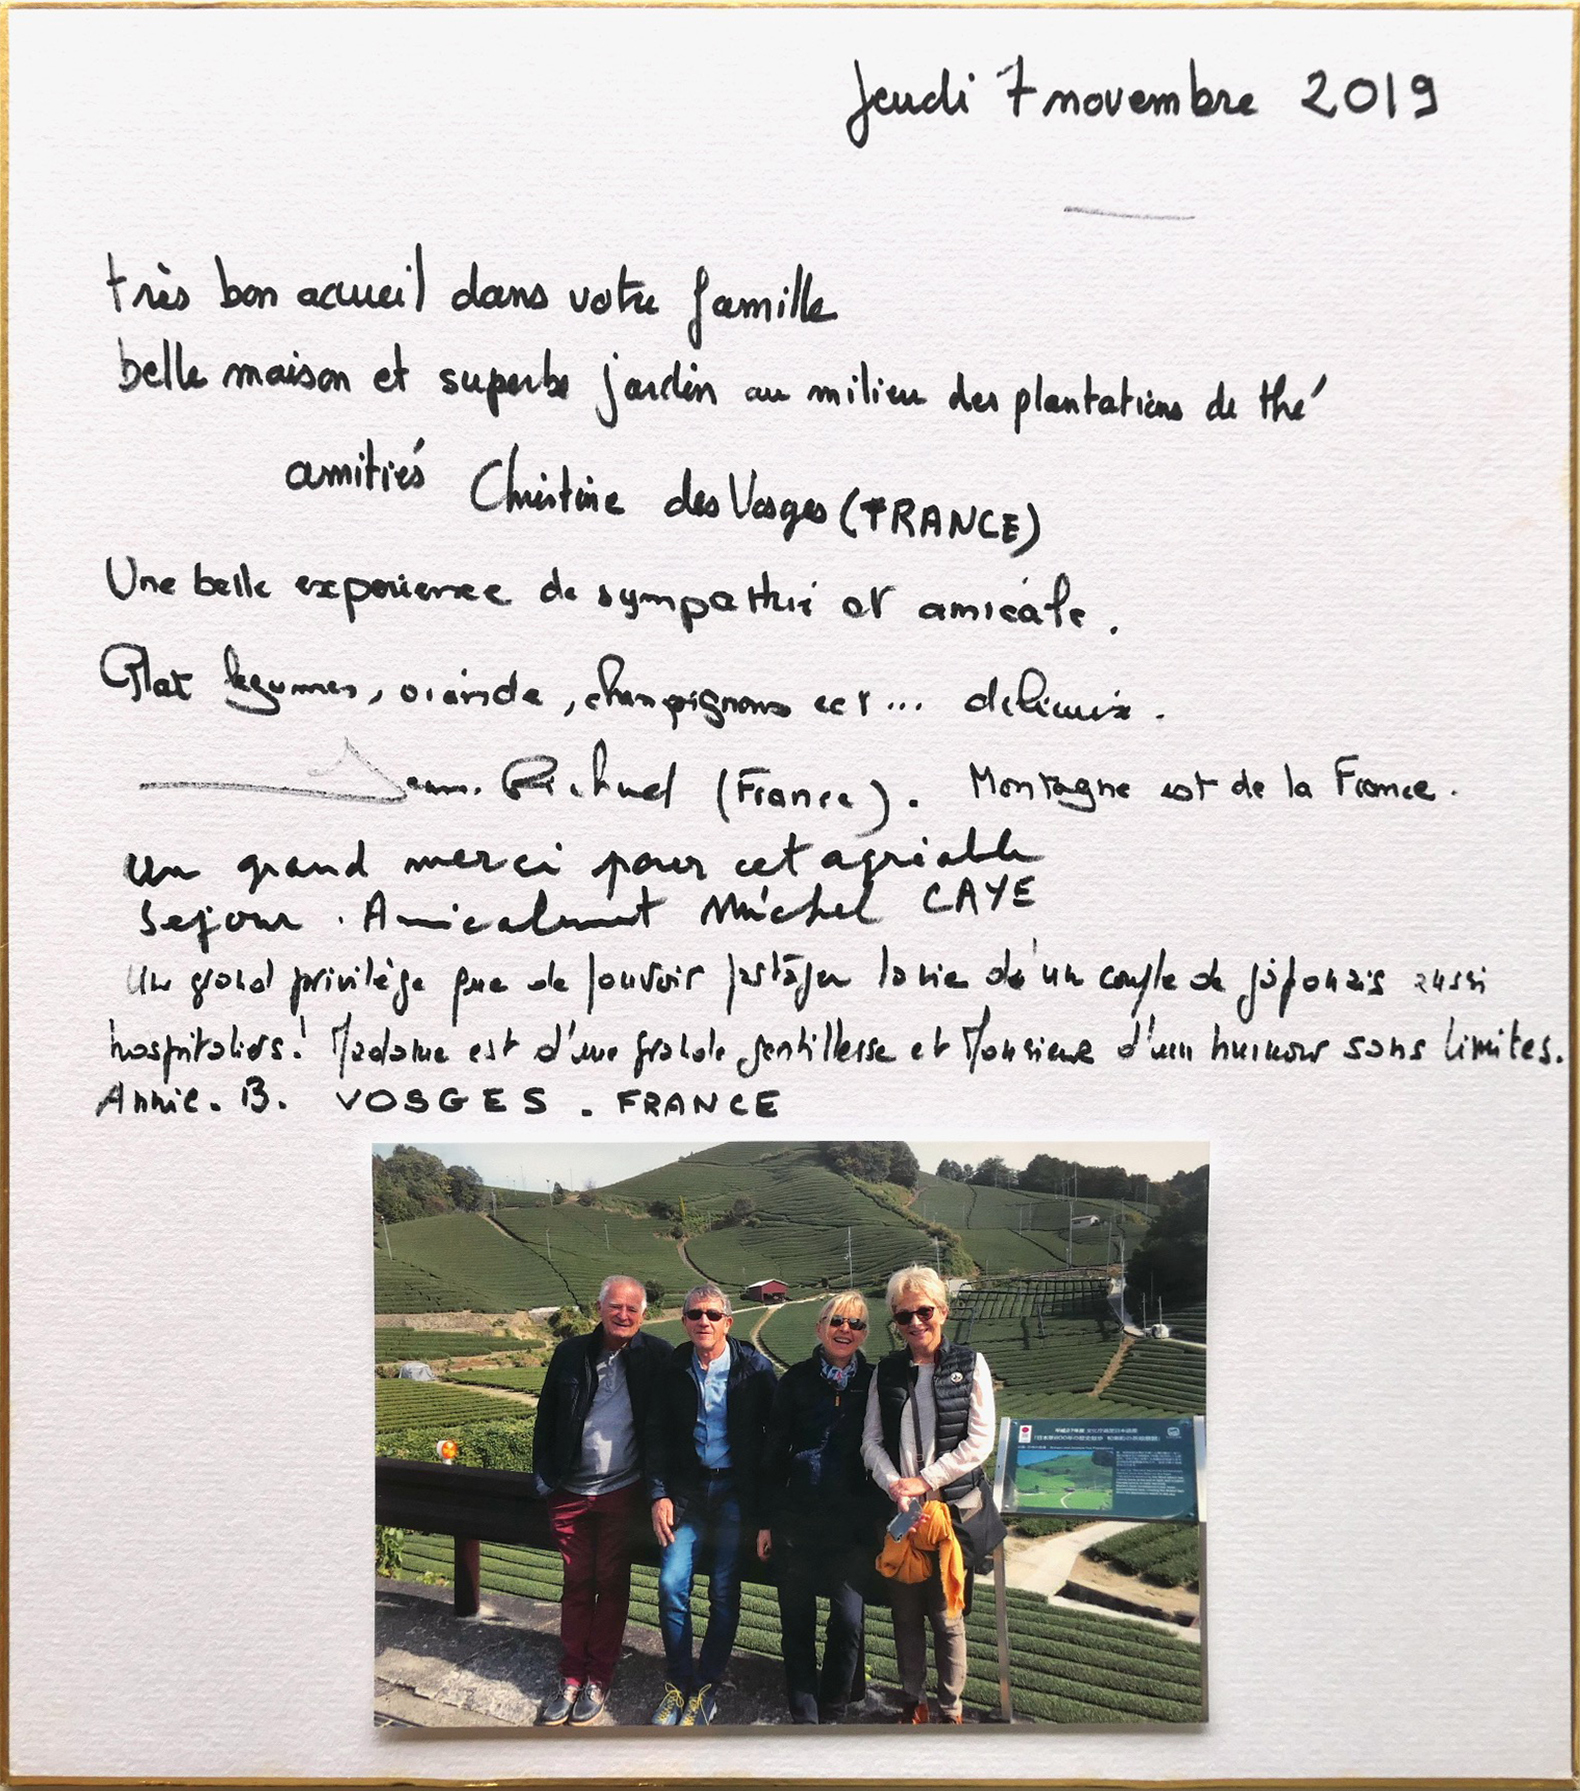 Jeudi 7 novembre 2019
très bon accueil dans votre famille
belle maison et superbe jardin au milieu des plantations de thé
amitiés Christine des Vosges (FRANCE)
Une belle experience de sympathie et amicale.
Plat legumes, viande, champignons ect... delicieux.
Jean. Michel (France). Montagne est de la France.
Un grand merci pour cet agréable
Sejour. Amicalement Michel CAYE
Un grand privilège que de pouvoir partager la vie d'un couple de japonais aussi
hospitaliers! Madame est d'une grande gentillesse et Monsieur d'un humour sans limites.
Annie. B. VOSGES. FRANCE